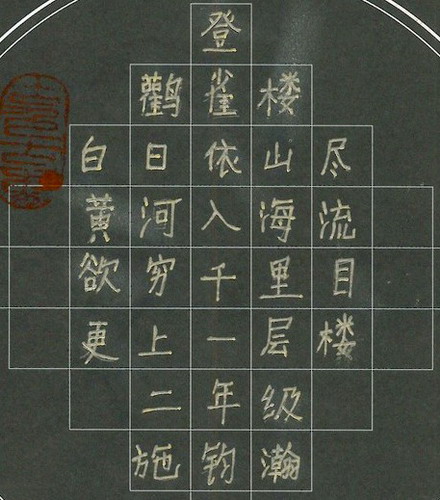 登
鹳雀楼
白日依山尽
黄河入海流
欲穷千里目
更上一层楼
二年级
施钧瀚